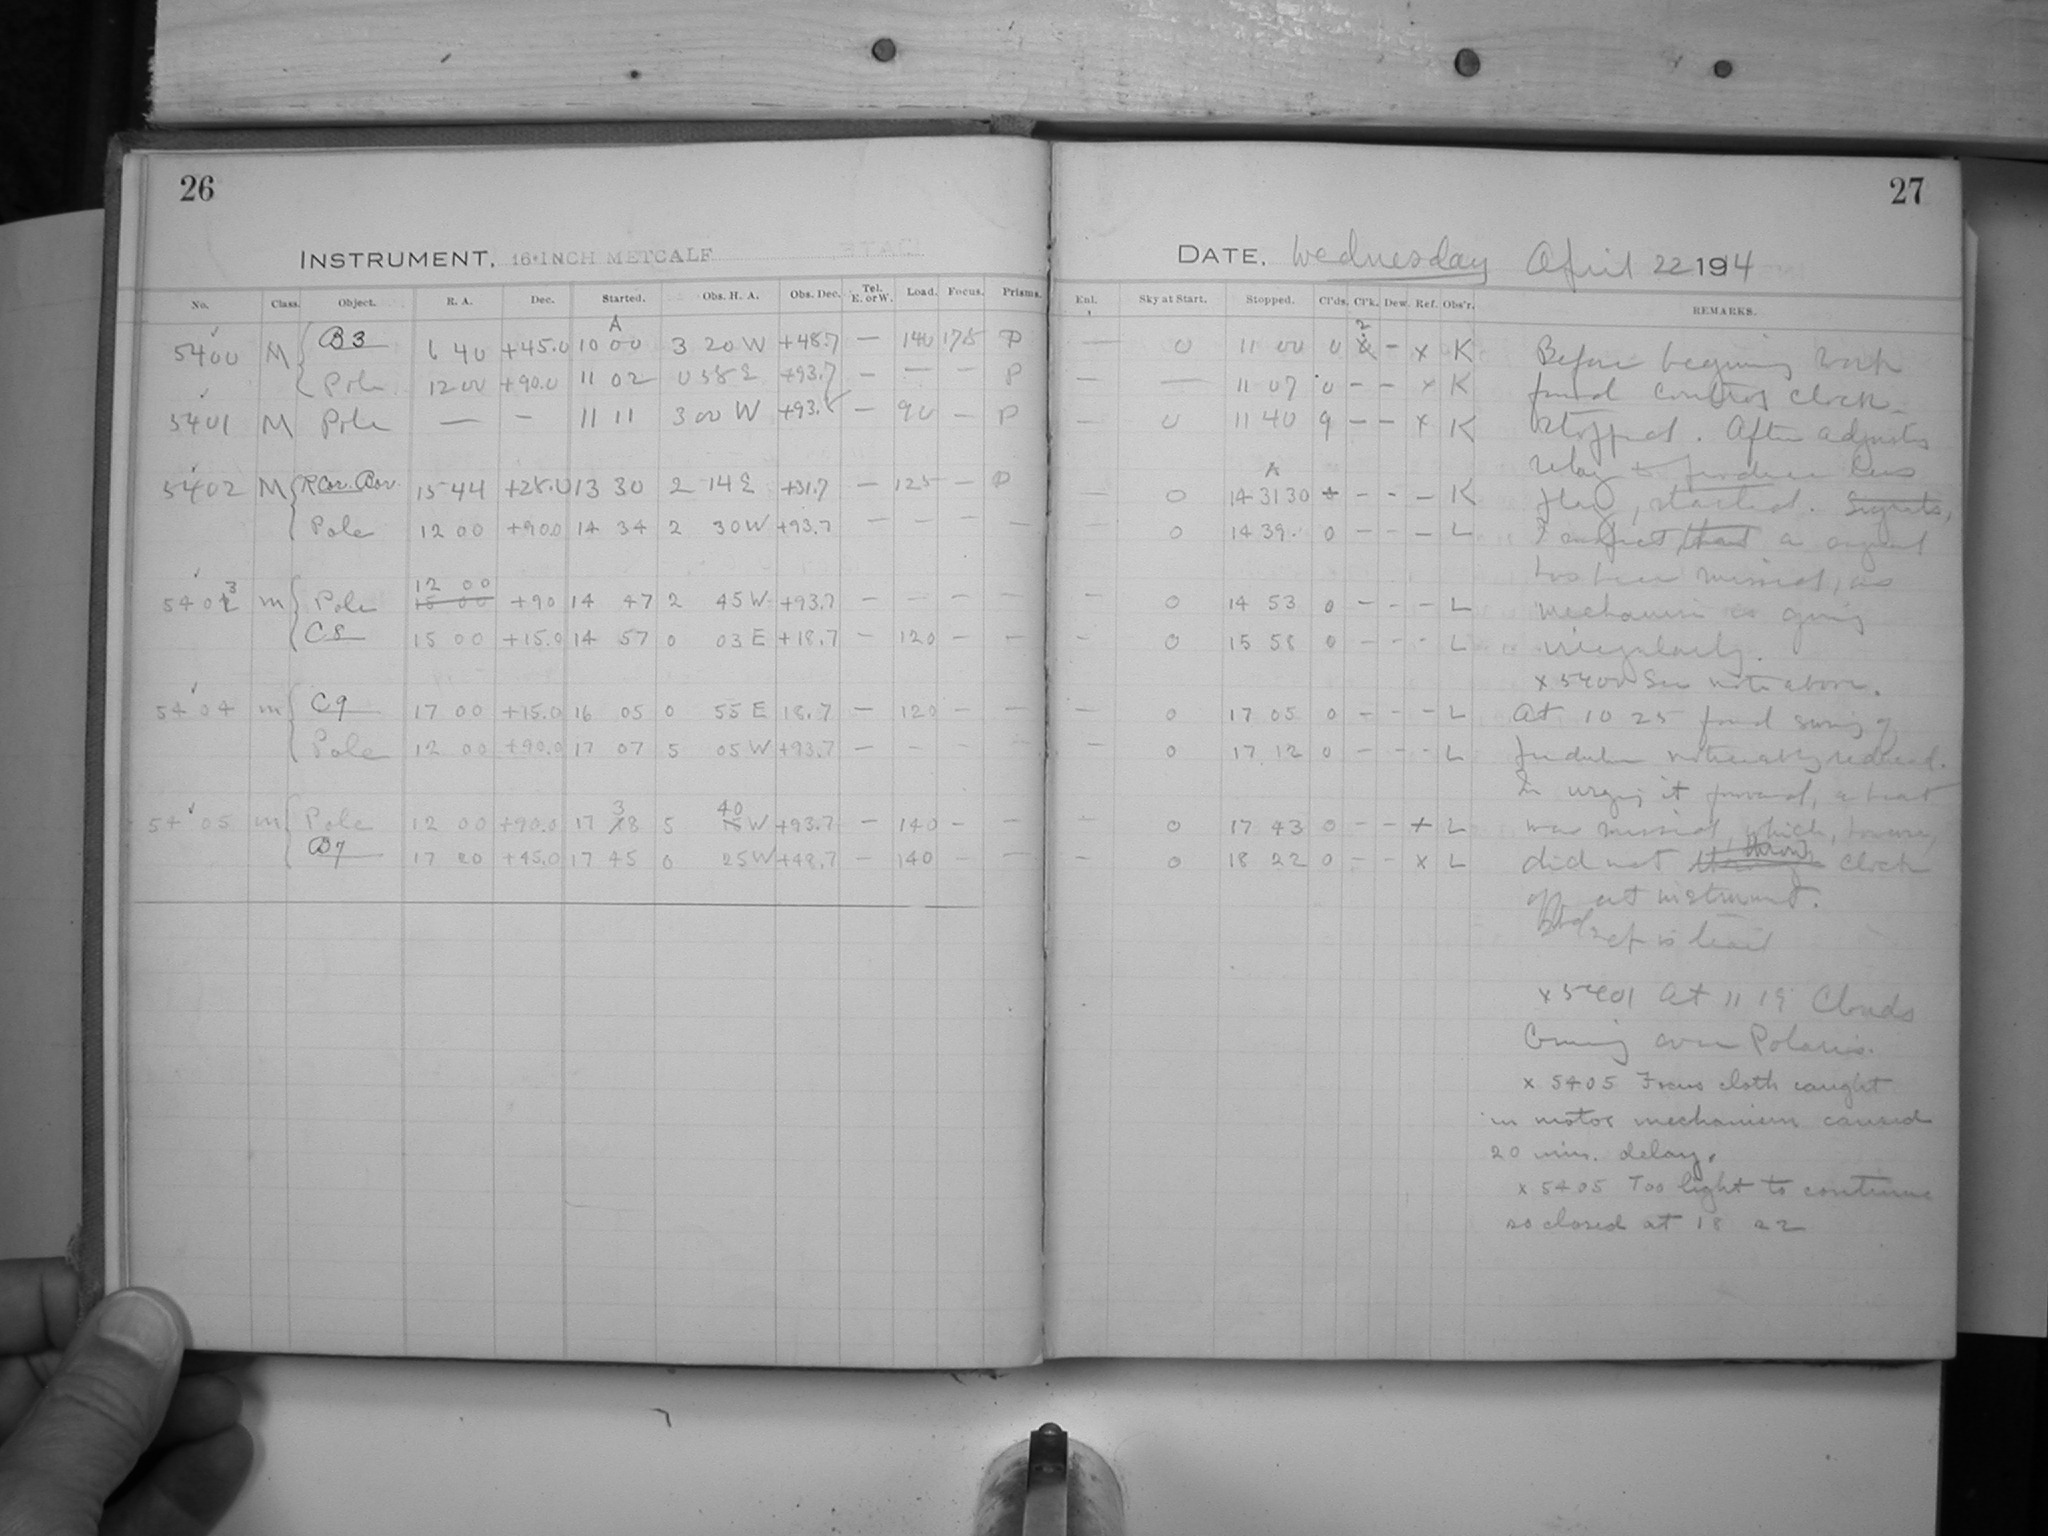 26
INSTRUMENT. 16-INCH METCALF
No. Class. Object. R. A. Dec. Started. Obs. H. A. Obs. Dec. Tel. E. or W. Load. Focus. Prisms.
A
5400 M B3 6 40 +45.0 10 00 3 20 W +48.7 — 140 178 P
Pole 12 00 +90.0 11 02 0 58 E +93.7 — — — P
5401 M Pole — — 11 11 3 00 W +93.8 — 90 — P
5402 M R Cor. Bor. 15 44 +28.0 13 30 2 14 E +31.7 — 125 — P
Pole 12 00 +90.0 14 34 2 30 W +93.7 — — — —
5403 m Pole 12 00 +90 14 47 2 45 W +93.7 — — — —
C8 15 00 +15.0 14 57 0 03 E +18.7 — 120 — —
5404 m C9 17 00 +15.0 16 05 0 55 E 18.7 — 120 — —
Pole 12 00 +90.0 17 07 5 05 W +93.7 — — — —
5405 m Pole 12 00 +90.0 17 38 5 40 W +93.7 — 140 — —
B7 17 20 +45.0 17 45 0 25 W +48.7 — 140 — —
27
DATE. Wednesday April 22 1914
Enl. Sky at Start. Stopped. Cl'ds. Cl'k. Dew. Ref. Obs'r. REMARKS.
— 0 11 00 0 2 — x K Before beginning work
— — 11 07 0 — — x K found control clock
— 0 11 40 9 — — x K stopped. After adjusting
relay to produce less
— 0 14 31 30 + — — — K play, started. Signals,
0 14 39 0 — — — L I suspect that a signal
has been missed, as
— 0 14 53 0 — — — L mechanism is going
— 0 15 58 0 — — — L irregularly.
x 5400 See note above.
— 0 17 05 0 — — — L At 10 25 found swing of
— 0 17 12 0 — — — L pendulum noticeably reduced.
In urging it forward, a beat
— 0 17 43 0 — — x L was missed, which, however,
0 18 22 0 — — x L did not throw clock
off at instrument.
2nd ref is trail
x 5401 At 11 19 Clouds
Coming over Polaris.
x 5405 Focus cloth caught
in motor mechanism caused
20 min. delay.
x 5405 Too light to continue
so closed at 18 22